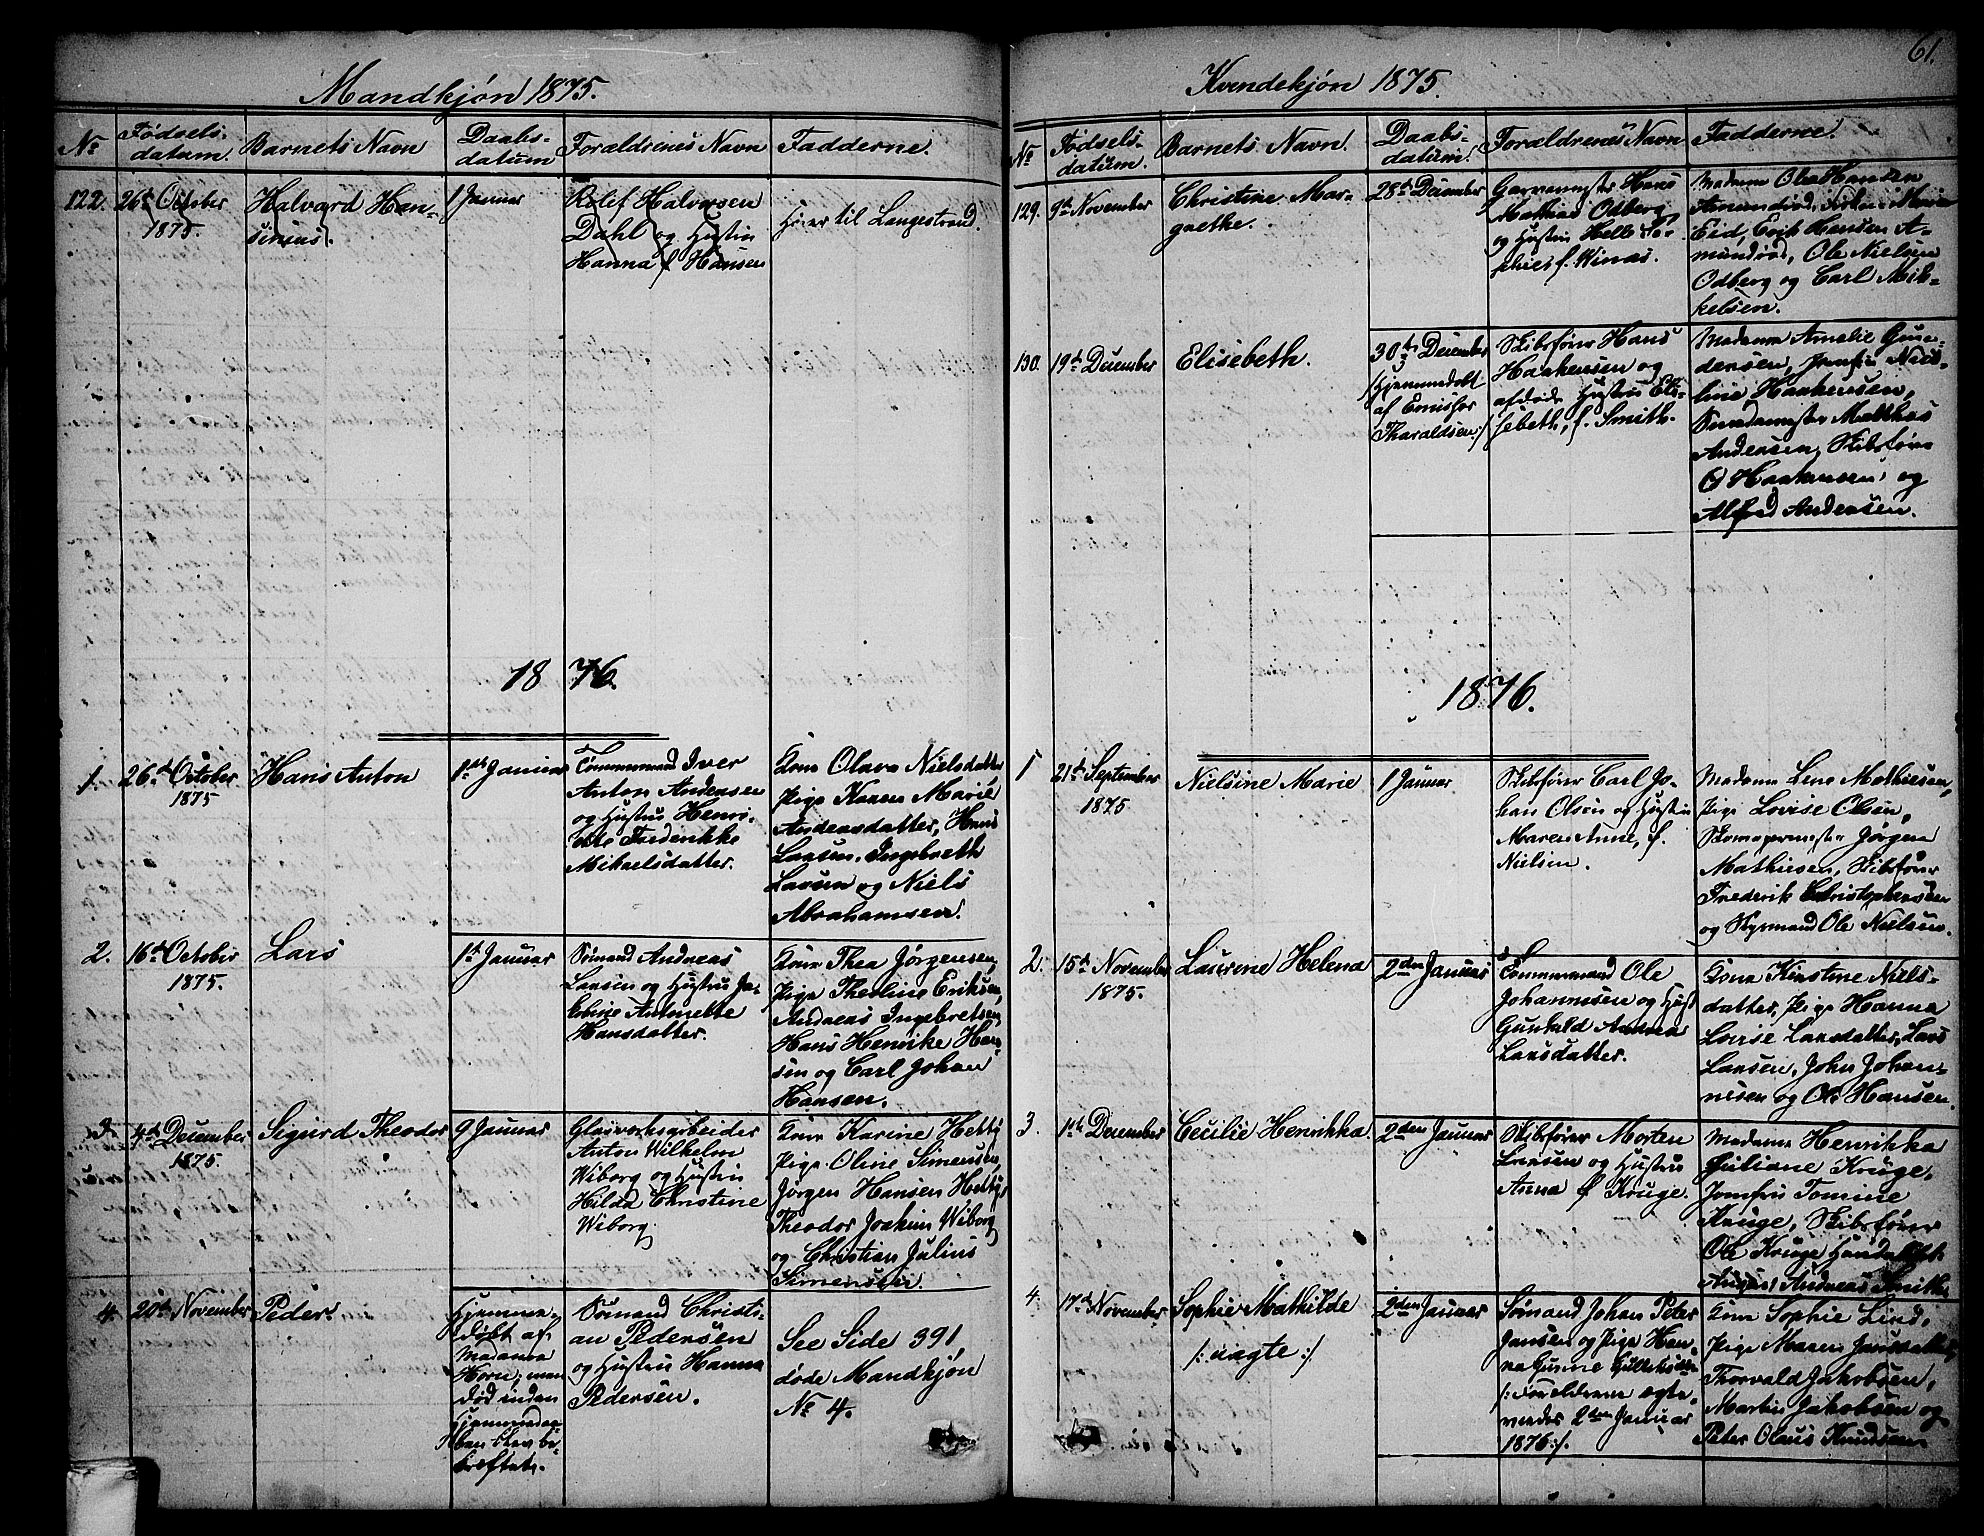 61.
Mandkjøn 1875.
No
Fødsels-
datum.
Barnets Navn
Daabs-
datum
Forældrenes Navn
Fadderne.
122.
26de October
1875.
Halvard Han-
sinius.
1 Januar
Rolef Halvorsen
Dahl og Hustru
Hanna f. Hansen
Hører til Langestrand.
1876.
1.
26de October
1875
Hans Anton
1ste Januar
Tømmermand Iver
Anton Andersen
og Hustru Henri-
ette Frederikke
Mikaelsdatter.
Kone Olava Nielsdatter
Pige Karen Marie
Andersdatter, Hans
Larsen, Ingebreth
Larsen og Niels
Abrahamsen.
2.
16de October
1875.
Lars
1ste Januar
Sømand Andreas
Larsen og Hustru Ja-
kobine Antonette
Hansdatter.
Kone Thea Jørgensen,
Pige Theoline Eriksen,
Andreas Ingebretsen,
Hans Henrike Han-
sen og Carl Johan
Hansen.
3.
4de December
1875.
Sigurd Theodor
9 Januar
Glasværksarbeider
Anton Wilhelm
Wiborg og Hustru
Hilda Christine
Wiborg.
Kone Karine Hetty
Pige Oline Simensen,
Jørgen Hansen Hetty,
Theodor Joakim Wiborg
og Christian Julius
Simensen.
4.
20de November
Peder.
Hjemme-
døbt af
Madame
Horn, men
død inden
Hjemmedaa-
ben blev be-
kræftet.
Sømand Christi-
an Pedersen
og Hustru Hanna
Pedersen.
See Side 391
døde Mandkjøn
No 4.
Kvendekjøn 1875.
No
Fødsels-
datum.
Barnets Navn.
Daabs-
datum.
Forældrenes Navn
Fadderne.
129.
9de November
Christine Mar-
grethe.
28de December
Garvermester Hans
Mathias Odberg
og Hustru Helle So-
phie f.
Madame Ole Hansen
Amundrød, Marie
Eid, Erik Hansen A-
mundrød, Ole Nielsen
Odberg og Carl Mik-
kelsen.
130.
19de December
Elisebeth.
30de December
/:Hjemmedøbt
af Emissær
Tharaldsen:/
Skibsfører Hans
Haakensen og
afdøde Hustru Eli-
sebeth, f. Smith.
Madame Amalie Gun-
dersen, Jomfru Niel-
sine Haakensen,
Mathias
Andersen, Skibsfører
O Haakensen og
Alfred Andersen.
1876.
1
21de September
1875
Nielsine Marie
1 Januar
Skibsfører Carl Jo-
han Olsen og Hustru
Maren Anne, f.
Nielsen.
Madame Line Mathiesen,
Pige Lovise Olsen,
Skomagermester Jørgen
Mathiesen, Skibsfører
Frederik Christophersen
og Styrmand Ole Nielsen.
2.
15de November
1875.
Laurene Helena
2den Januar
Tømmermand Ole
Johannesen og Hust
Gunhild Andrea
Larsdatter.
Kone Kirstine Niels-
datter, Pige Hanna
Lovise Larsdatter, Lars
Larsen, John Johan-
nesen og Ole Hansen.
3.
1ste December
Cecilie Henrikka.
2den Januar
Skibsfører Morten
Larsen og Hustru
Anna f Kruge.
Madame Henrikka
Juliane Kruge,
Jomfru Tomine
Kruge, Skibsfører
Ole Kruge
August Andreas Smith.
4.
17de November
Sophie Mathilde
/: uægte :/
2den Januar
Sømand Johan Peter
Jansen og Pige Han-
na Gurine
/:Forældrene ægte-
viedes 2den Januar
1876:/.
Kone Sophie Lind,
Pige Maren Jansdatter,
Thorvald Jakobsen,
Martin Jakobsen og
Peter Olaus Knudsen